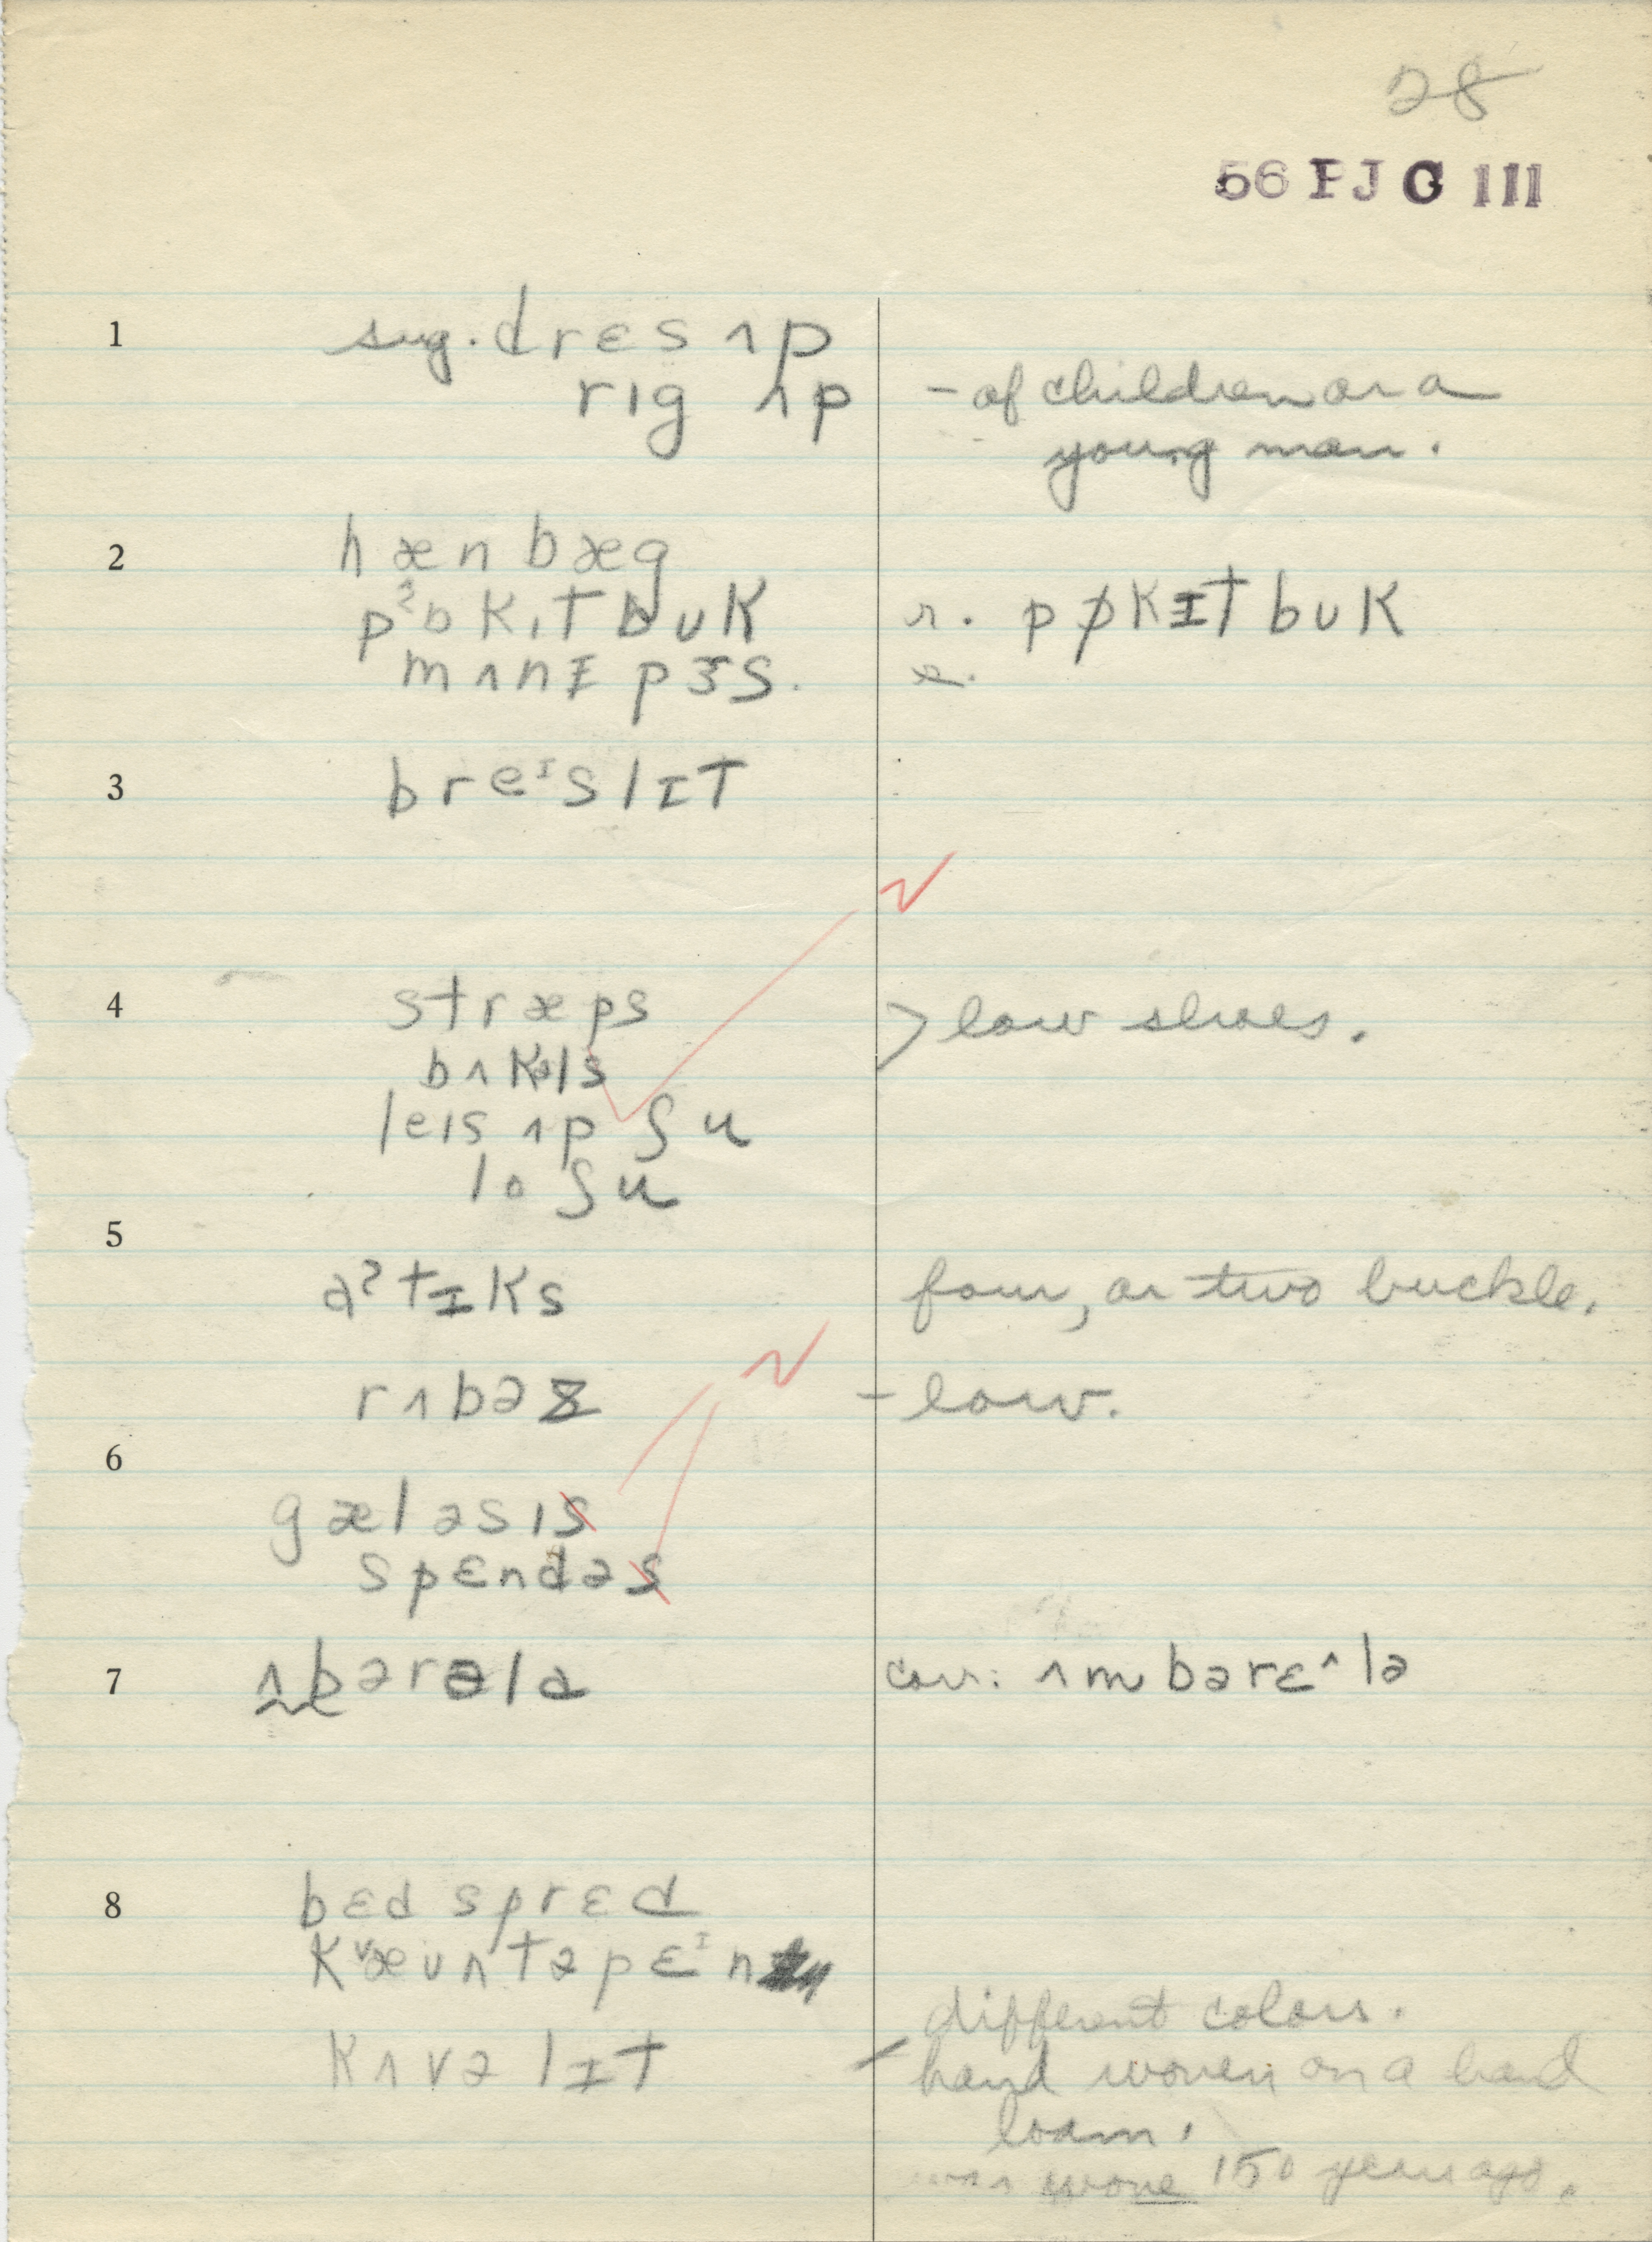 28
56 PJG III
1 sug. drɛs ʌp
rɪg ʌp – of children or a
young man.
2 hæn bæg
pˀɒkɪt bʊk r. pɒkɪt bʊk
mʌnɪ pɝs. r.
3 breᴵslɪt
4 stræps > low shoes.
bʌkəls
leɪs ʌp ʃu
lo ʃu
5
aˀtɪks four, or two buckle.
rʌbəz – low.
6
gæləsɪs
spɛndəs
7 ʌbərələ corr: ʌmbərɛ^lə
8 bɛd sprɛd
Kᵛæʊntəpɛᴵn
different colors.
kʌvəlɪt – hand woven on a hand
loom.
wove 150 years ago.